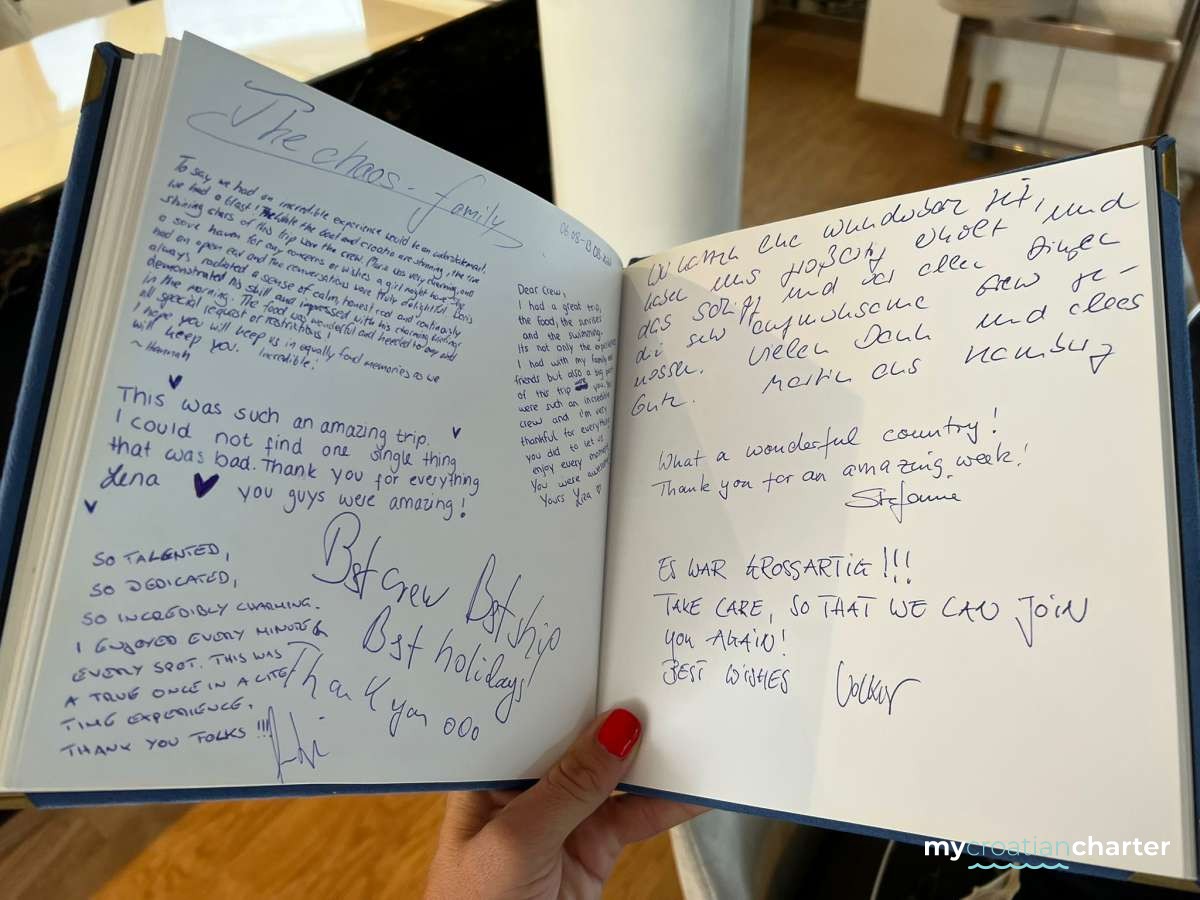 The chaos-family
06.08-13.08.
To say we had an incredible experience would be an understatement.
we had a blast! While the boat and croatia are stunning, the true
shining stars of this trip were the crew. Maria was very charming, and
a save haven for any concerns or wishes a girl might have. She
had an open ear and the conversations were truly delightful. Boris
always radiated a sense of calm, honest and continously
demonstrated his skill and impressed with his charming
in the morning. The food was wonderful and heeded to any and
all special request or restrictions!
I hope you will keep us in equally fond memories as we
will keep you. Incredible!
~ Hannah
This was such an amazing trip.
I could not find one single thing
that was bad. Thank you for everything
Lena ♥ you guys were amazing!
SO TALENTED,
SO DEDICATED,
SO INCREDIBLY CHARMING.
I ENJOYED EVERY MINUTE &
EVERY SPOT. THIS WAS
A TRUE ONCE IN A LIFE
TIME EXPERIENCE.
THANK YOU FOLKS !!!
Bst crew Bst ship
Bst holidays
Thank you ooo
Dear Crew,
I had a great trip,
the food, the sunrises
and the swimming.
Its not only the experience
I had with my family and
friends but also a big part
of the trip you. You
were such an incredible
crew and I'm very
thankful for everything
you did to let us
enjoy every moment
You were awesome
Yours Liza ♡
Wir hatten eine wunderbare Zeit, und
haben uns großartig erholt
das Schiff und vor allen Dingen
die sehr aufmerksame Crew ge-
nossen. Vielen Dank und alles
Gute. Martin aus Hamburg
What a wonderful country!
Thank you for an amazing week!
Stefanie
ES WAR GROSSARTIG!!!
TAKE CARE, SO THAT WE CAN JOIN
YOU AGAIN!
BEST WISHES Volker
mycroatiancharter